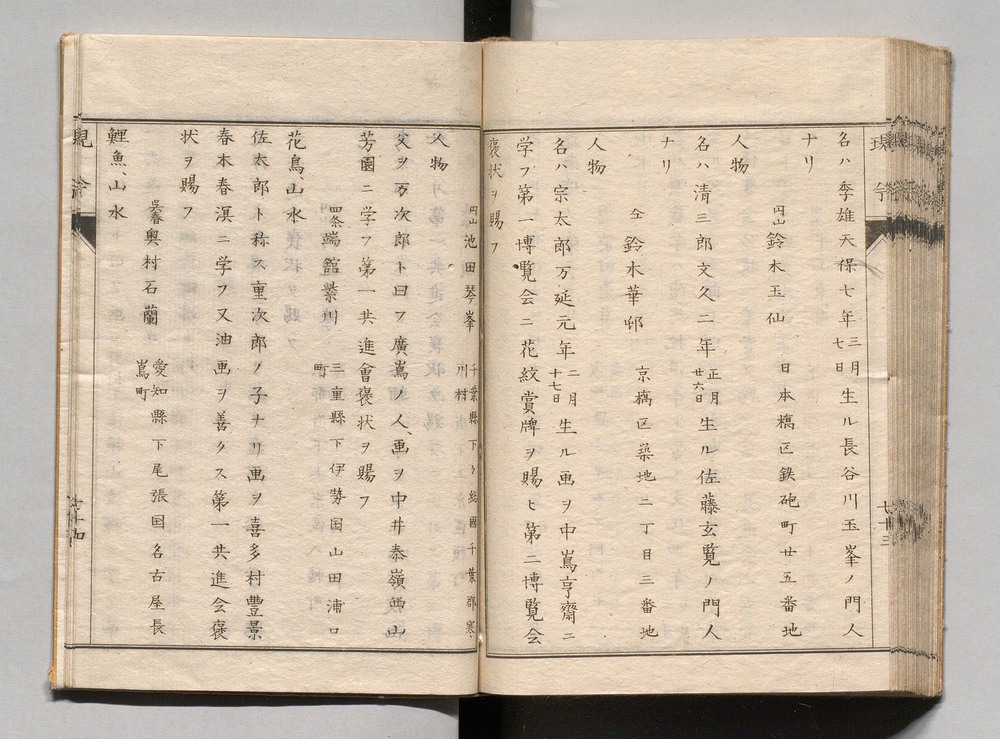 名ハ季雄天保七年三月七日生ル長谷川玉峯ノ門人
ナリ
円山 鈴木玉仙 日本橋区鉄砲町廿五番地
人物
名ハ清三郎文久二年正月廿六日生ル佐藤玄覧ノ門人
ナリ
仝 鈴木華邨 京橋区築地二丁目三番地
人物
名ハ宗太郎万延元年二月十七日生ル画ヲ中嶌亨齋ニ
学フ第一博覧会ニ花紋賞牌ヲ賜ヒ第二博覧会
褒状ヲ賜フ
七十三
円山 池田琴峯 千葉縣下々総國千葉郡寒川村
人物
父ヲ万次郎ト曰フ廣嶌ノ人、画ヲ中井泰嶺西山
芳園ニ学フ第一共進會褒状ヲ賜フ
四条 端館紫川 三重縣下伊勢国山田浦口町
花鳥、山水
佐太郎ト称ス重次郎ノ子ナリ画ヲ喜多村豊景
春木春溟ニ学フ又油画ヲ善クス第一共進会褒
状ヲ賜フ
呉春 奥村石蘭 愛知縣下尾張国名古屋長嶌町
鯉魚、山水
七十四